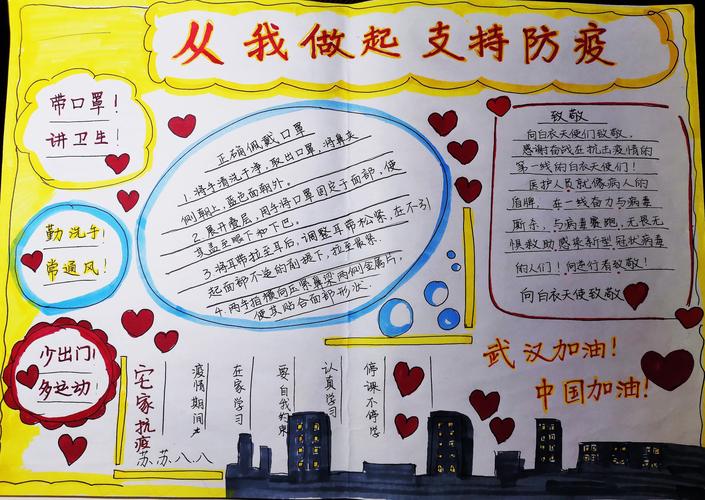 从我做起 支持防疫
带口罩!
讲卫生!
勤洗手!
常通风!
少出门!
多运动!
正确佩戴口罩
1.将手清洗干净,取出口罩,将鼻夹
侧朝上,蓝色面朝外。
2.展开叠层,用手将口罩固定于面部,使
其盖至眼下和下巴。
3.将耳带拉至耳后,调整耳带松紧,在不引
起面部不适的前提下,拉至最紧.
4.两手指横向压紧鼻梁两侧金属片,
使其贴合面部形状.
致敬
向白衣天使们致敬,
感谢奋战在抗击疫情的
第一线的白衣天使们!
医护人员就像病人的
盾牌,在一线奋力与病毒
厮杀,与病毒赛跑,无畏无
惧救助感染新型冠状病毒
的人们!向逆行者致敬!
向白衣天使致敬
武汉加油!
中国加油!
宅家抗疫
疫情期间
在家学习
要自我约束
认真学习
停课不停学
苏苏八八